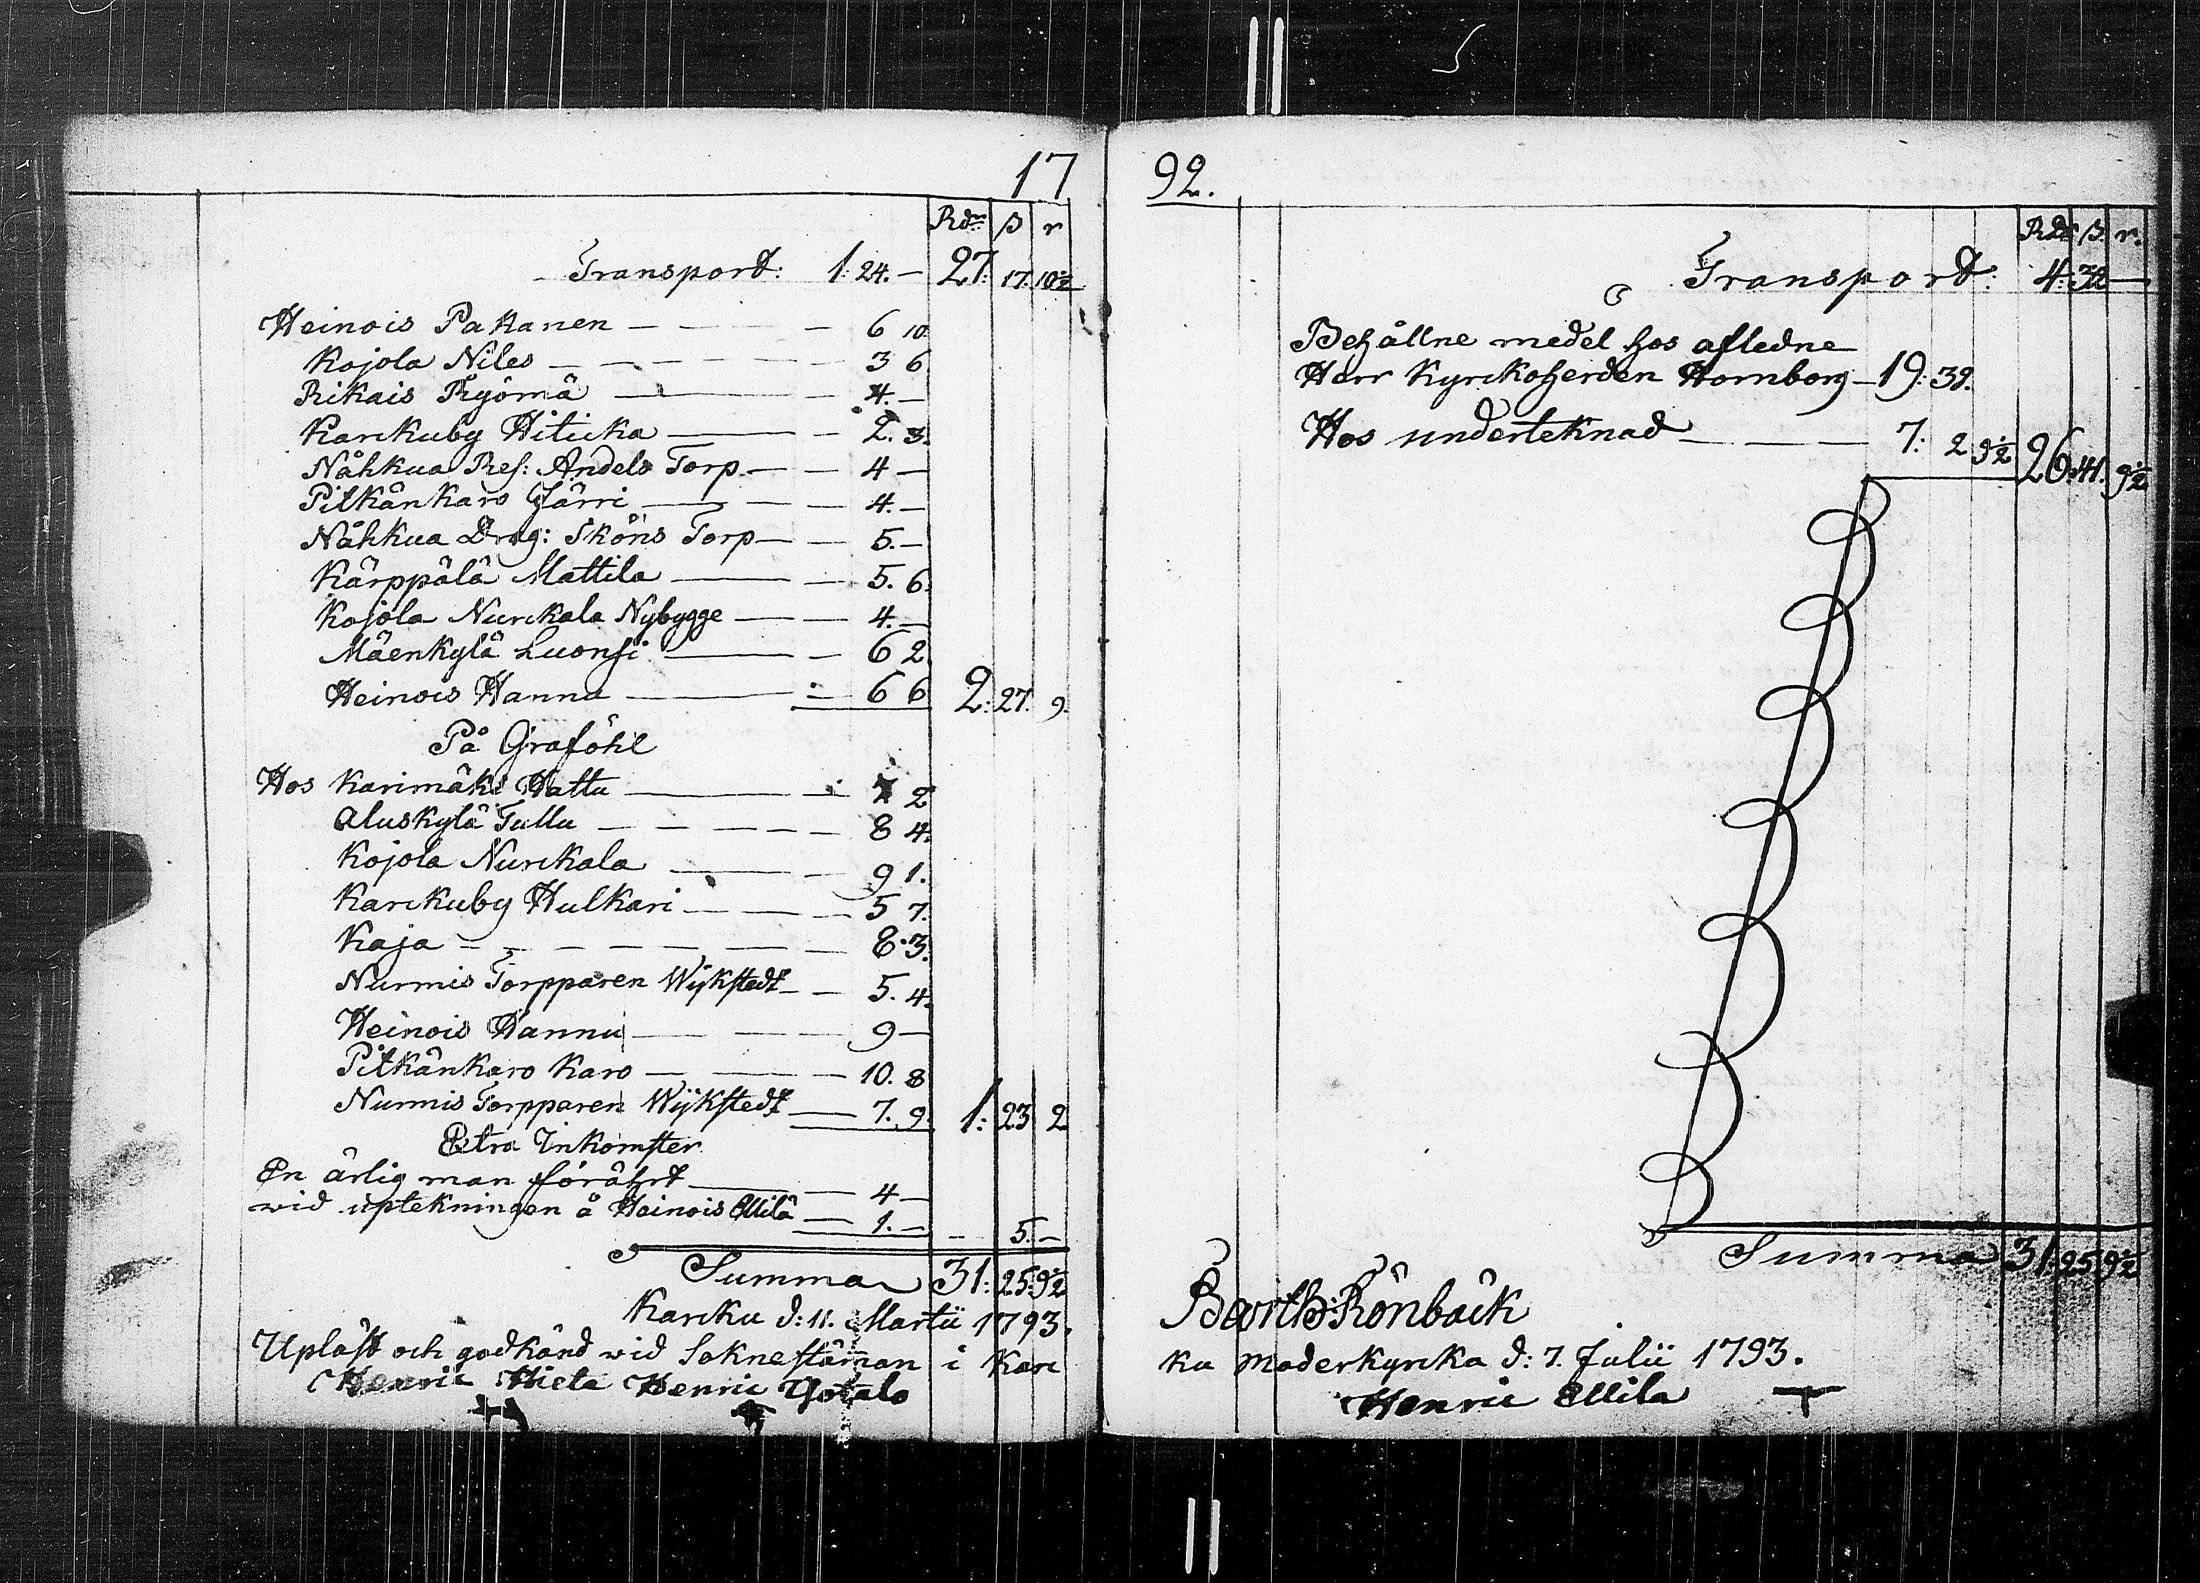 17
Rdr ß r
Transport: 1: 24. — 27: 17. 10½
Heinois Pakanen — — — 6 10.
Kojola Niles — — — — — 3 6
Rikais Ryömä — — — 4. —
Karckuby Hiticka — — 2. 3.
Nåhkua Ref: Andels Torp — — 4 —
Pitkänkaro Järri — — — 4. —
Nåhkua Drag: Sköns Torp — — 5. —
Kärppälä Mattila — — 5. 6.
Kojola Nurckala Nybygge — — 4. —
Mäenkylä Luonsi — — 6 2.
Heinois Hannu — — 6 6 2: 27. 9.
På Graföhl
Hos Karimäki Hattu — — 7 2
Aluskylä Tullu — — — — — 8 4.
Kojola Nurckala — — — 9 1.
Karckuby Hulkari — — — — 5 7.
Kaja — — — — — — — 8. 3.
Nurmis Torpparen Wijkstedt — — 5. 4.
Heinois Hannu — — — 9 —
Pitkänkaro Karo — — — — 10. 8
Nurmis Torpparen Wijkstedt — 7. 9. 1: 23 2
Extra Inkomster
En ärlig man förährt — — 4 —
wid uptekningen å Heinois Ellilä — 1. — — 5. —
Summa 31: 25. 9½
Karcku d: 11. Martii 1793.
Upläst och godkänd wid Soknestämman i Karc
Henric Hiete Henric Yotalo
92.
Rdr ß. r.
Transport: 4: 32 —
Behållne medel hos afledne
Herr Kyrckoherden Hornborg — 19: 39.
Hos underteknad — — — 7: 2 9½ 26: 41. 9½
Summa 31: 25. 9½
Barth: Rönbäck
ku Moderkyrcka d: 7. Julii 1793.
Henric Ellila